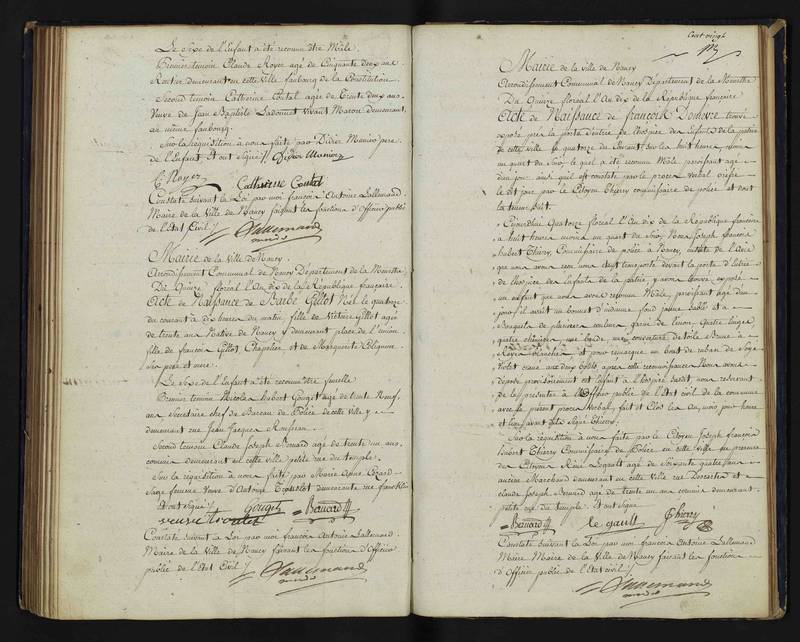 Le Sexe de l'Enfant a été reconnu être Mâle.
Premier temoin Claude Royer agé de Cinquante deux ans
Rentier demeurant en cette Ville faubourg de la Constitution.
Second temoin Catherine Contal agée de Trente deux ans.
Veuve de Jean Baptiste Ladomet vivant Macon Demeurant
au même faubourg.
Sur la requisition à nous faite par Didier Munier pere
de l'Enfant Et ont signé // Didier Munier
C Royer Catherine Contal
Constaté suivant la Loi par moi françois Antoine Lallemand
Maire de la Ville de Nancy faisant les fonctions d'Officier public
de l'Etat Civil //
Lallemand
Mairie de la Ville de Nancy.
Arrondissement Communal de Nancy Département de la Meurthe
Du Quinze floréal l'An dix de la République française.
Acte de Naissance de Barbe Gillot Née le quatorze
du courant à dix heures du matin fille de Victoire Gillot agée
de trente ans Native de Nancy y demeurant place de l'union
fille de françois Gillot Chapelier et de Marguerite
ses pere et mere.
Le Sexe de l'Enfant a été reconnu être femelle
Premier temoin Nicolas hubert Gouget agé de trente Neuf
ans Secretaire chef de Bureau de Police de cette ville y
demeurant rue Jean Jacques Rousseau.
Second temoin Claude Joseph Benard agé de trente un ans.
commis demeurant en cette ville petite rue du temple.
Sur la requisition à nous faite par Marie Anne
Sage femme Veuve d'Antoine demeurante rue franklin
Et ont signé //
veuve Gouget Benard
Constaté suivant la Loi par moi françois Antoine Lallemand
Maire de la Ville de Nancy faisant les fonctions d'Officier
public de l'Etat Civil //
Lallemand
Cent vingt
Mairie de la ville de Nancy
Arrondissement Communal de Nancy Département de la Meurthe
Du Quinze floréal l'An dix de la République française
Acte de Naissance de françois Domevre trouvé
exposé près la porte d'entrée de l'hospice des Enfants de la patrie
de cette ville le quatorze du Courant sur les huit heures moins
un quart du Soir, le quel a été reconnu Mâle paroissant agé
d'un jour ainsi qu'il est constaté par le procès verbal
le dit jour par le Citoyen Thiery commissaire de police et dont
la teneur suit.
Cejourd'hui Quatorze floréal l'An dix de la République française
à huit heures moins un quart du Soir, Nous Joseph françois
hubert Thiery, Commissaire de police à Nancy, de l'Avis
que nous avons reçu nous être transporté devant la porte d'entrée
de l'hospice des enfans de la patrie, y avons trouvé exposé
un enfant que nous avons reconnu Mâle, paroissant agé d'un
jour, il avait un bonnet d'indienne fond jaune Sablé et à
Bouquets de plusieurs couleurs garni de linon quatre linges
quatre chemises une bande, une couverture de toile Brune à
Rayes blanches, et pour remarque un bout de ruban de Soye
Violet aux deux bouts, après cette reconnaissance Nous avons
deposé provisoirement cet Enfant à l'hospice susdit, nous reservant
de le présenter à l'Officier public de l'Etat civil de la commune
avec le présent procès Verbal, fait et Clos les An, mois jour heure
et lieu avant dits signé Thiery.
Sur la requisition à nous faite par le Citoyen Joseph françois
hubert Thiery Commissaire de Police en cette Ville en présence
des Citoyens René Legault agé de Soixante quatre ans
ancien Marchand demeurant en cette ville rue Descartes et
Claude Joseph Benard agé de trente un ans commis demeurant
petite rue du temple. Et ont signé
Benard le gault Thiery
Constaté suivant la Loi par moi françois Antoine Lallemand
Maire Maire de la Ville de Nancy faisant les fonctions
d'Officier public de l'Etat civil //
Lallemand